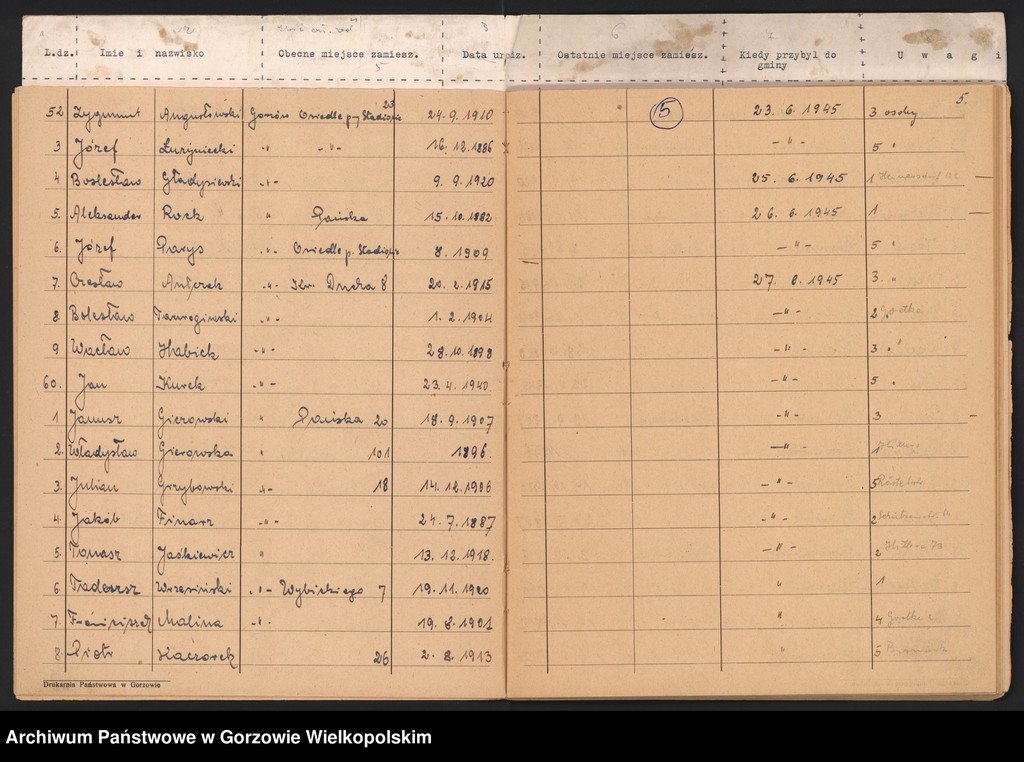 L.dz. Imie i nazwisko Obecne miejsce zamiesz. Data urodz. Ostatnie miejsce zamiesz. Kiedy przybył do gminy U w a g i
5.
52 Zygmunt Augustowski Gorzów Osiedle przy Stadionie 23 24.9.1910 5 23.6.1945 3 osoby
3 Józef -"- -"- 16.12.1886 -"- 5 "
4 Bolesław Gładysiewski -"- 9.9.1920 25.6.1945 1
5. Aleksander Rock " Pańska 15.10.1882 26.6.1945 1
6. Józef Parys -"- Osiedle p. Stadionie 8.1909 -"- 5 "
7. Czesław Antczak -"- 8 20.2.1915 27.6.1945 3 "
8 Bolesław Tarnogiński -"- 1.2.1904 -"- 2 Goethe
9 Wacław Habiek -"- 28.10.1898 -"- 3 "
60. Jan Kurek -"- 23.4.1940 -"- 5 "
1 Janusz Gierowski " Pańska 20 18.9.1907 -"- 3
2. Władysław Gierowska " 101 1896 -"- 1
3. Julian Grzybowski -"- 18 14.12.1906 -"- 5
4. Jakób Finarz -"- 24.7.1887 -"- 2
5. Tomasz Jaśkiewicz " 13.12.1918 -"- 2
6 Tadeusz Wrzesiński -"- Wybickiego 7 19.11.1920 " 1
7. Franciszek Malina -"- 19.8.1901 " 4 Goethe
8. Piotr Kaczorek 26 2.8.1913 " 5
Drukarnia Państwowa w Gorzowie
Archiwum Państwowe w Gorzowie Wielkopolskim